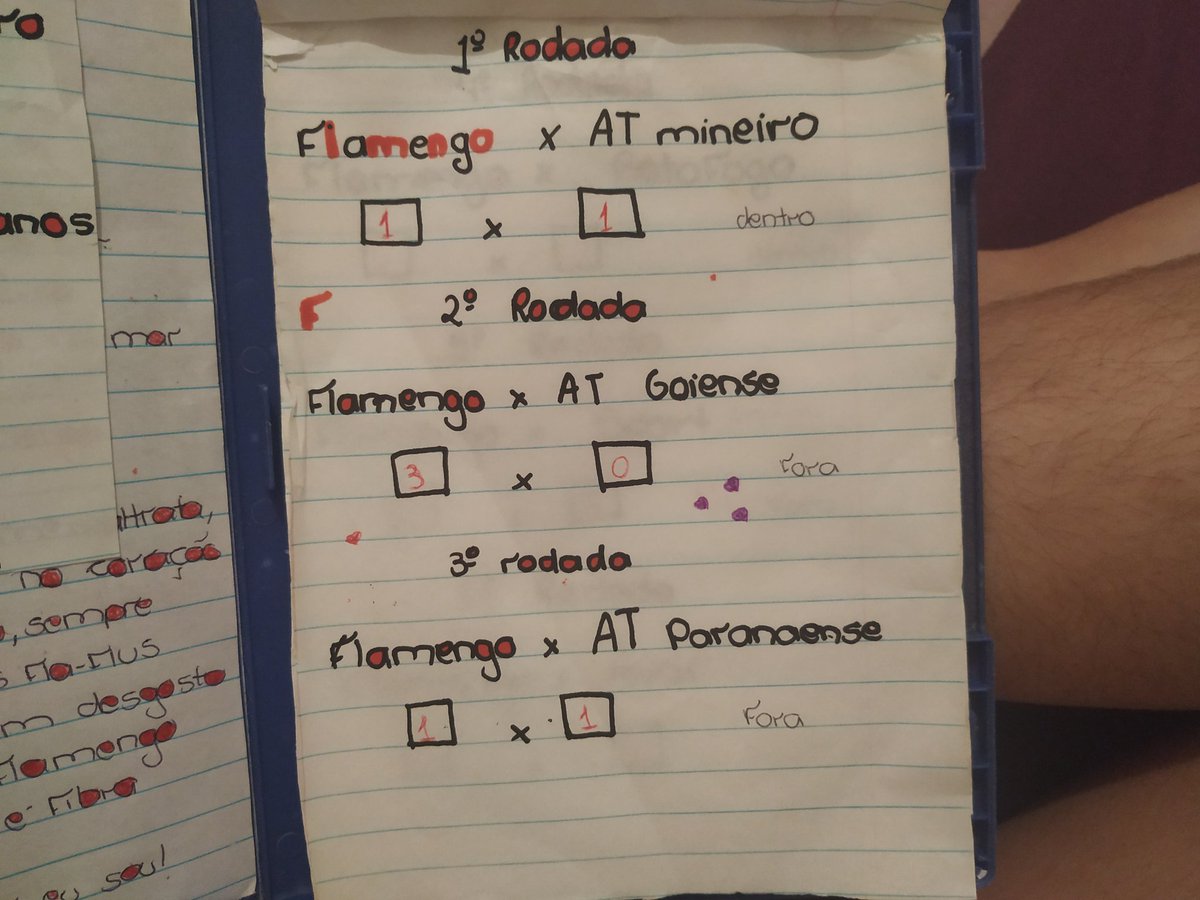 ro
anos
mar
ltrata,
no coração
, sempre
s Fla-Flus
m desgosto
Flamengo
e Fibra
eu sou!
1º Rodada
Flamengo x AT mineiro
1 x 1 dentro
F 2º Rodada
Flamengo x AT Goiense
3 x 0 Fora
3º rodada
Flamengo x AT Paranaense
1 x 1 Fora